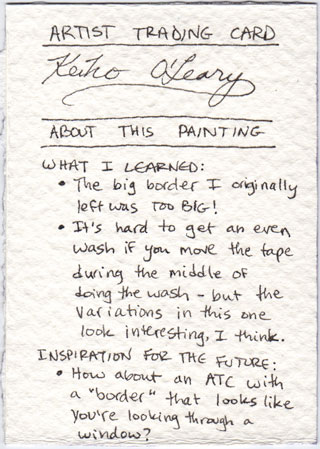 ARTIST TRADING CARD
Keiko O'Leary
ABOUT THIS PAINTING
WHAT I LEARNED:
• The big border I originally
left was TOO BIG!
• It's hard to get an even
wash if you move the tape
during the middle of
doing the wash – but the
variations in this one
look interesting, I think.
INSPIRATION FOR THE FUTURE:
• How about an ATC with
a "border" that looks like
you're looking through a
window?